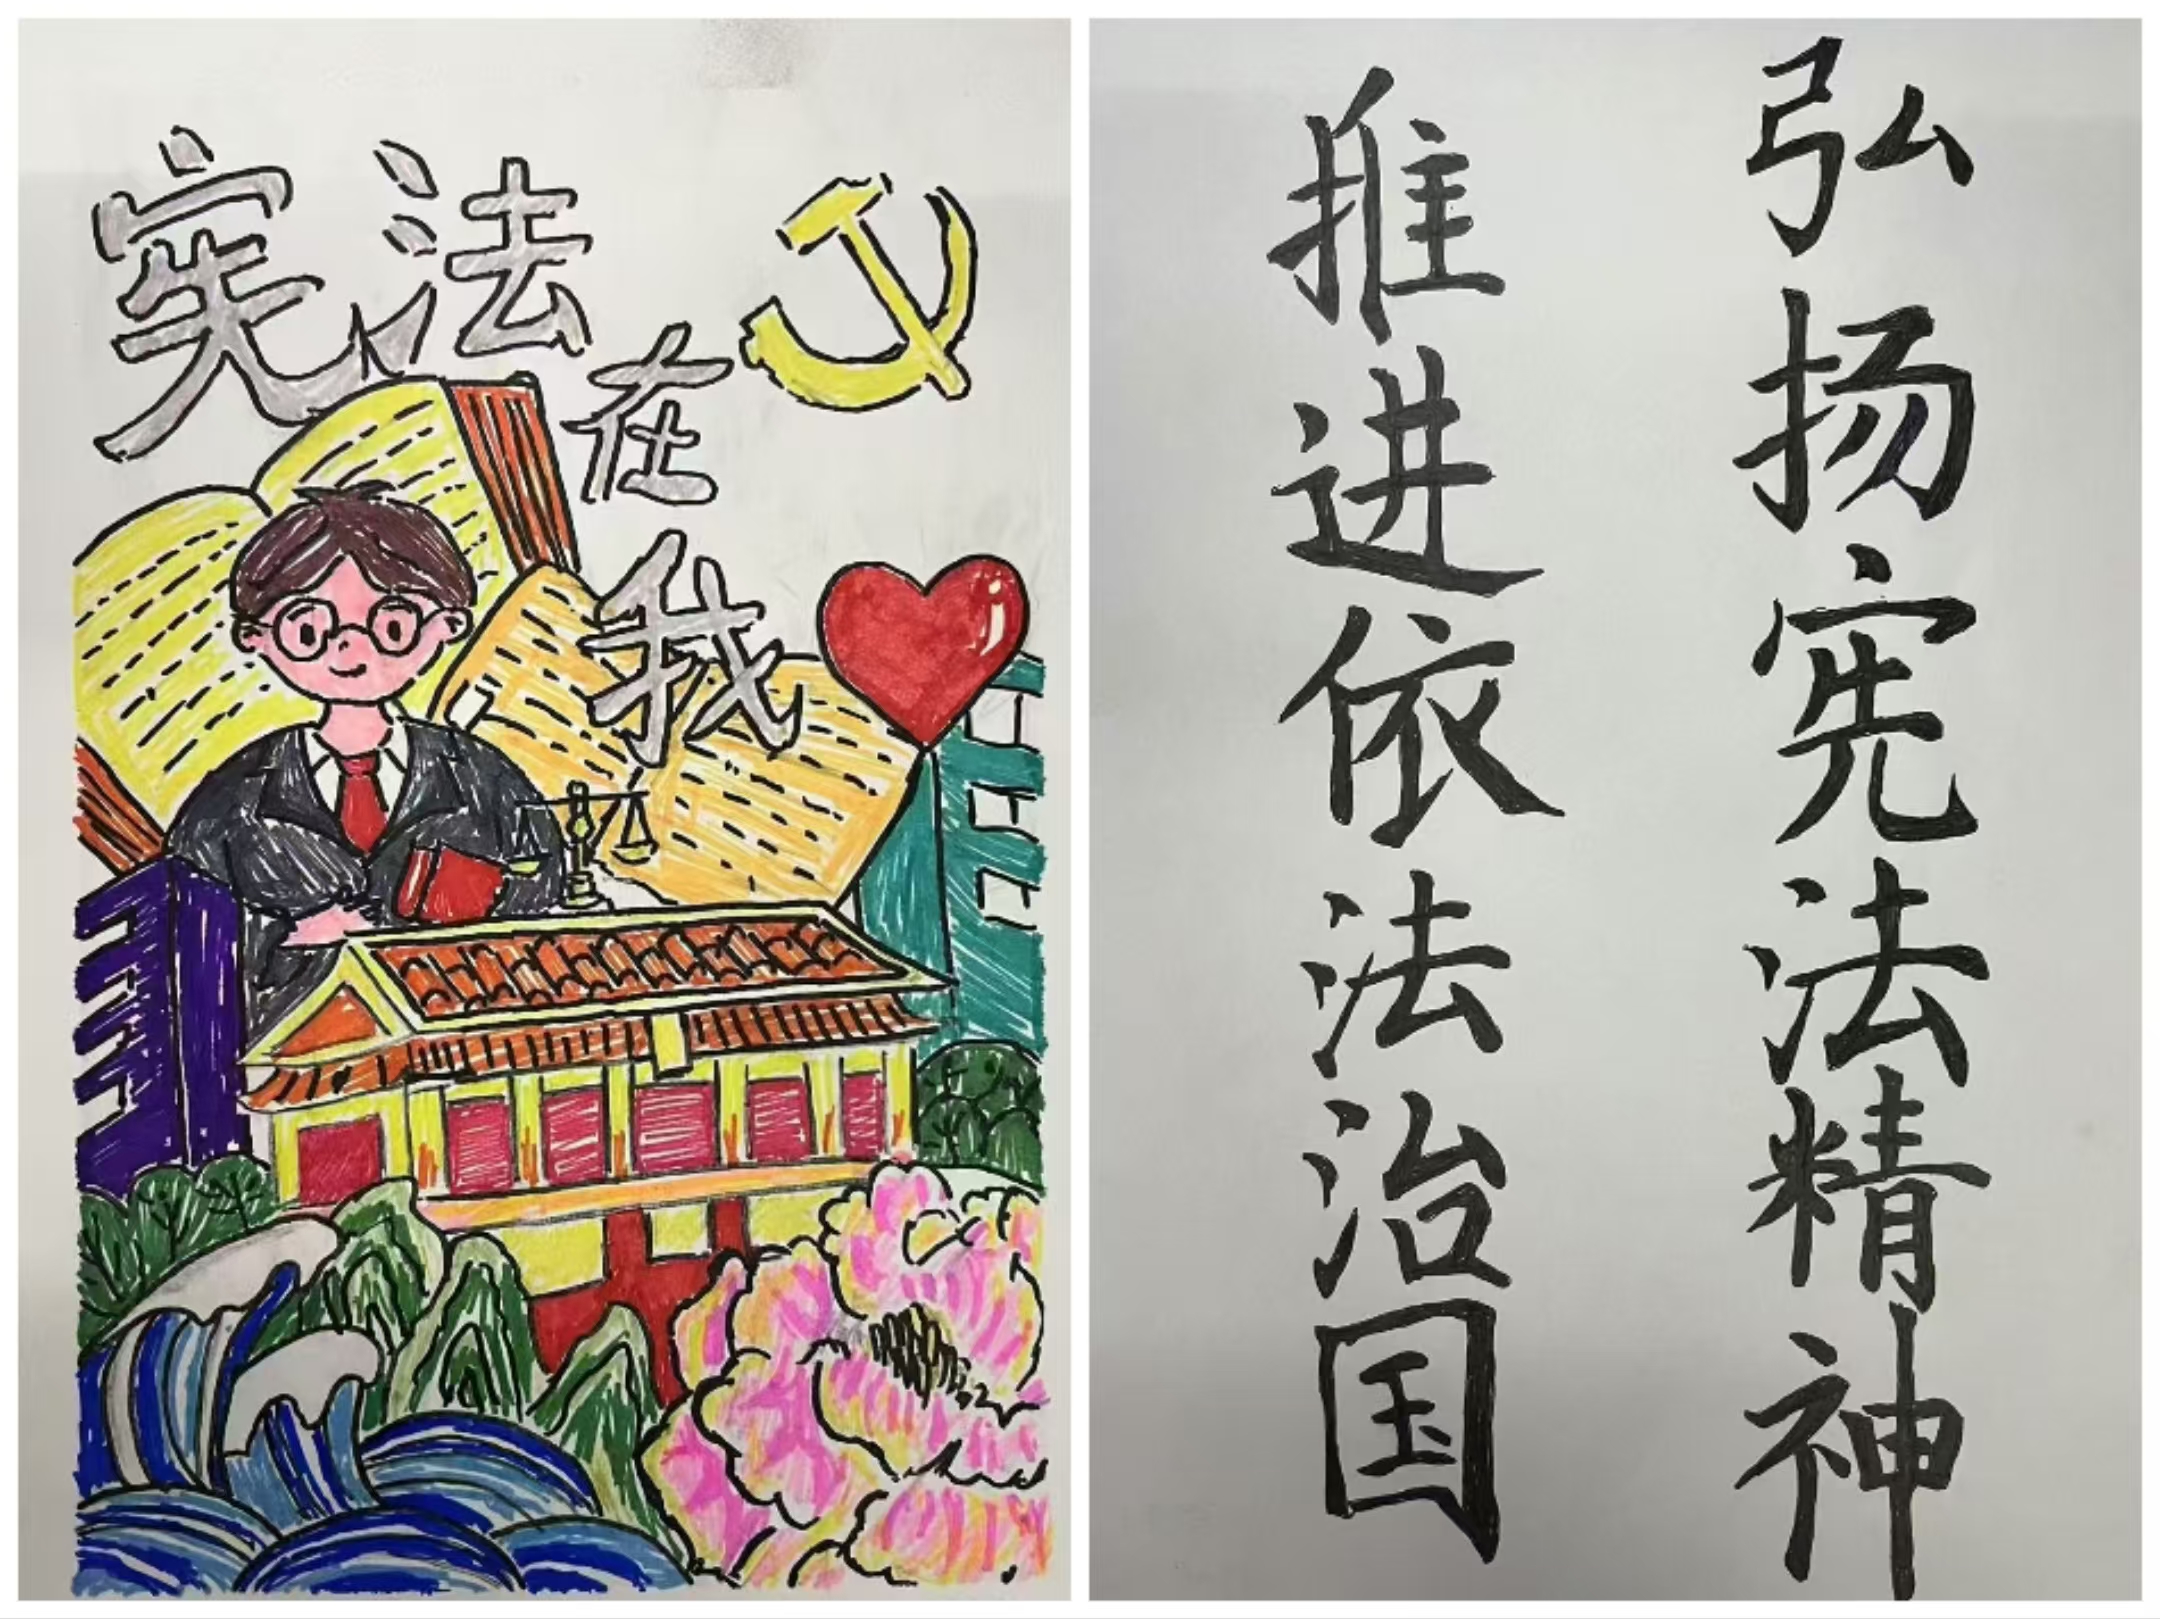 宪法
在
我
弘扬宪法精神
推进依法治国